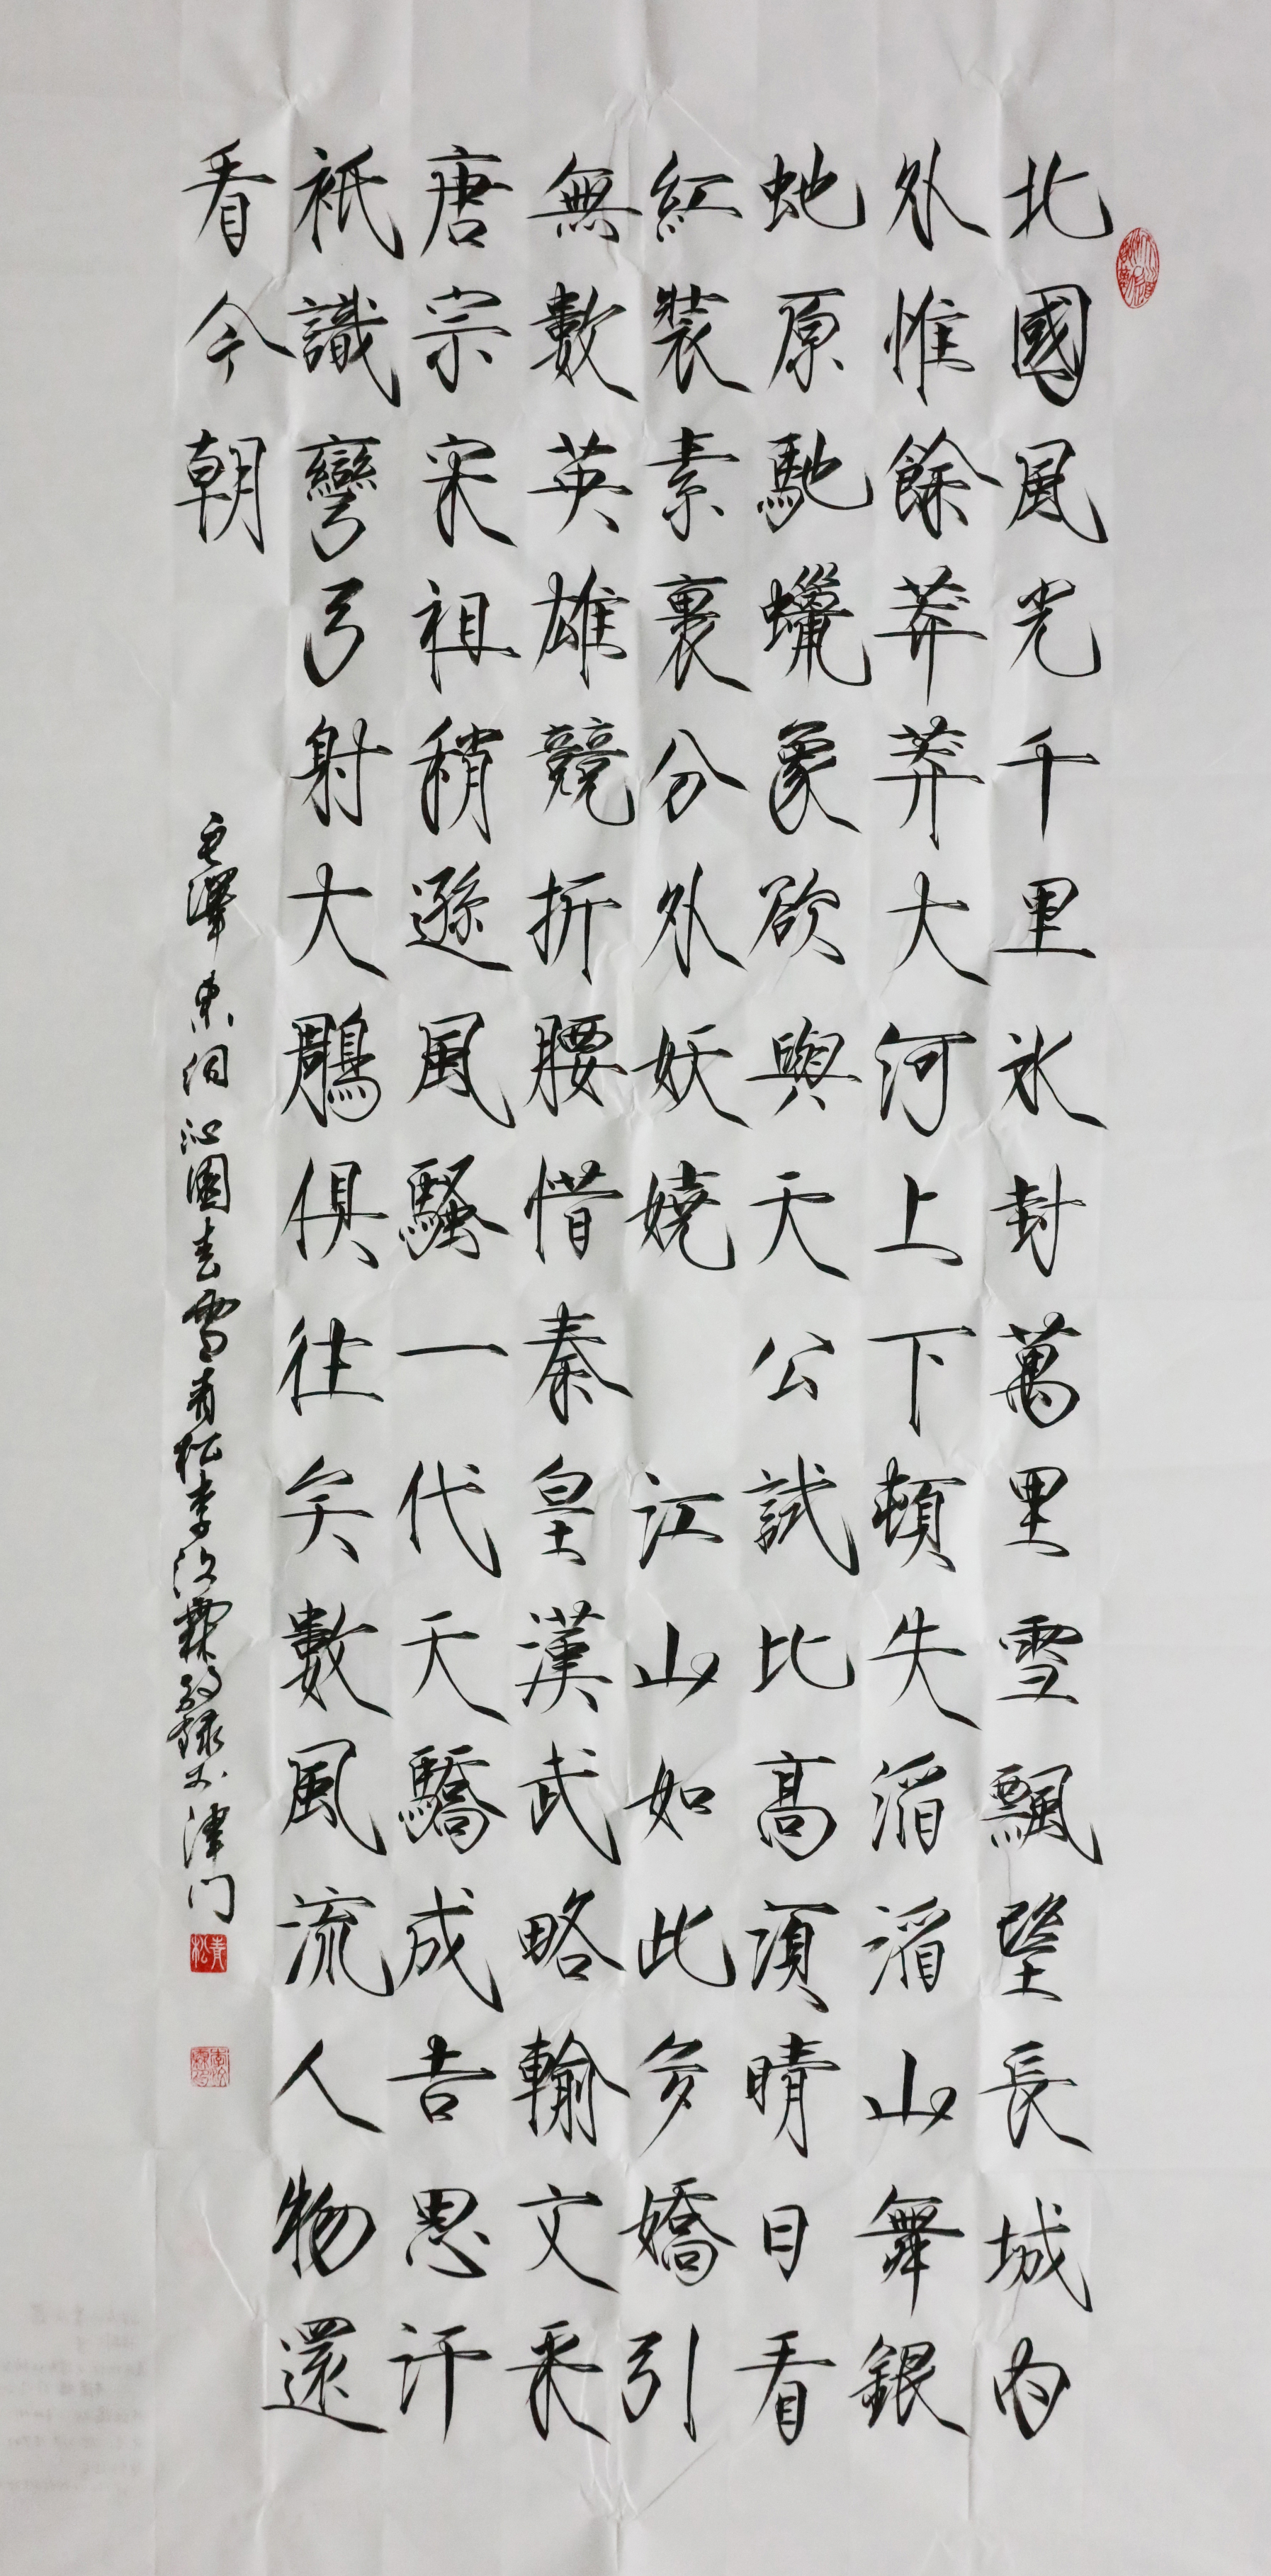 北國風光千里冰封萬里雪飄望長城內
外惟餘莽莽大河上下頓失滔滔山舞銀
蛇原馳蠟象欲與天公試比高須晴日看
紅裝素裹分外妖嬈 江山如此多嬌引
無數英雄競折腰惜秦皇漢武略輸文采
唐宗宋祖稍遜風騷一代天驕成吉思汗
祇識彎弓射大鵰俱往矣數風流人物還
看今朝
毛澤東詞沁園春雪青松李汝霖錄於津门
青松